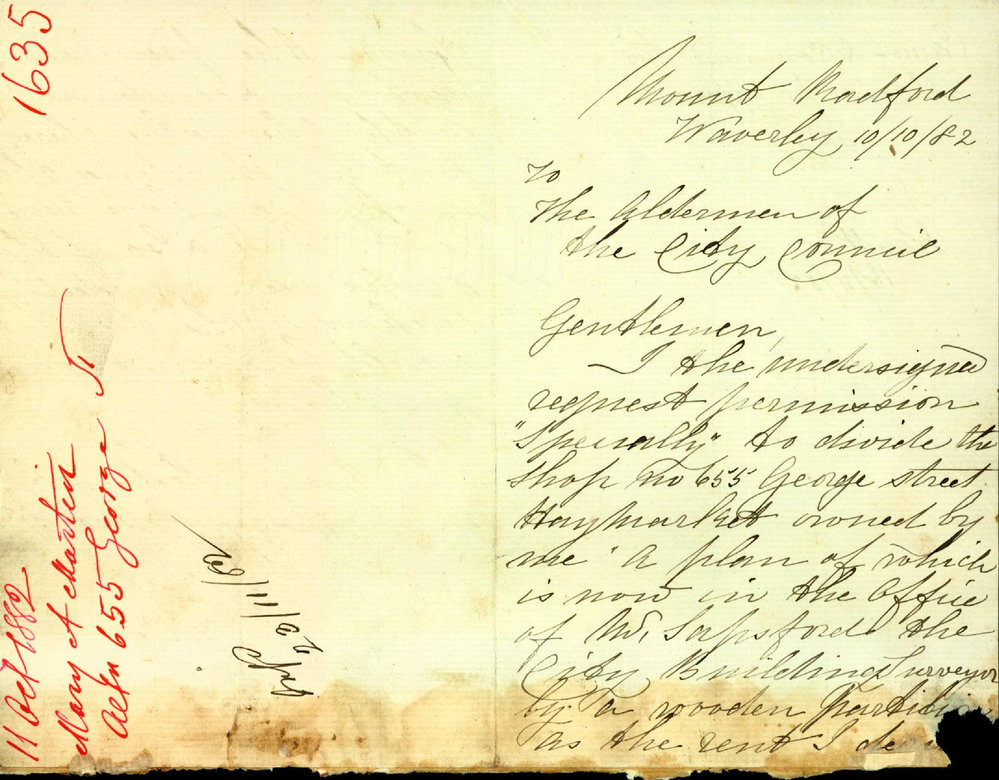 1635
11 Oct 1882
Mary A Martin
655 George St
Mount Radford
Waverley 10/10/82
To
The Aldermen of
the City Council
Gentlemen,
I the undersigned
request permission
"Specially" to divide the
Shop no 655 George street
Haymarket owned by
me " a plan of which
is now in the Office
of Mr. Sapsford the
City Building Surveyor
by a wooden Partition
as the rent I